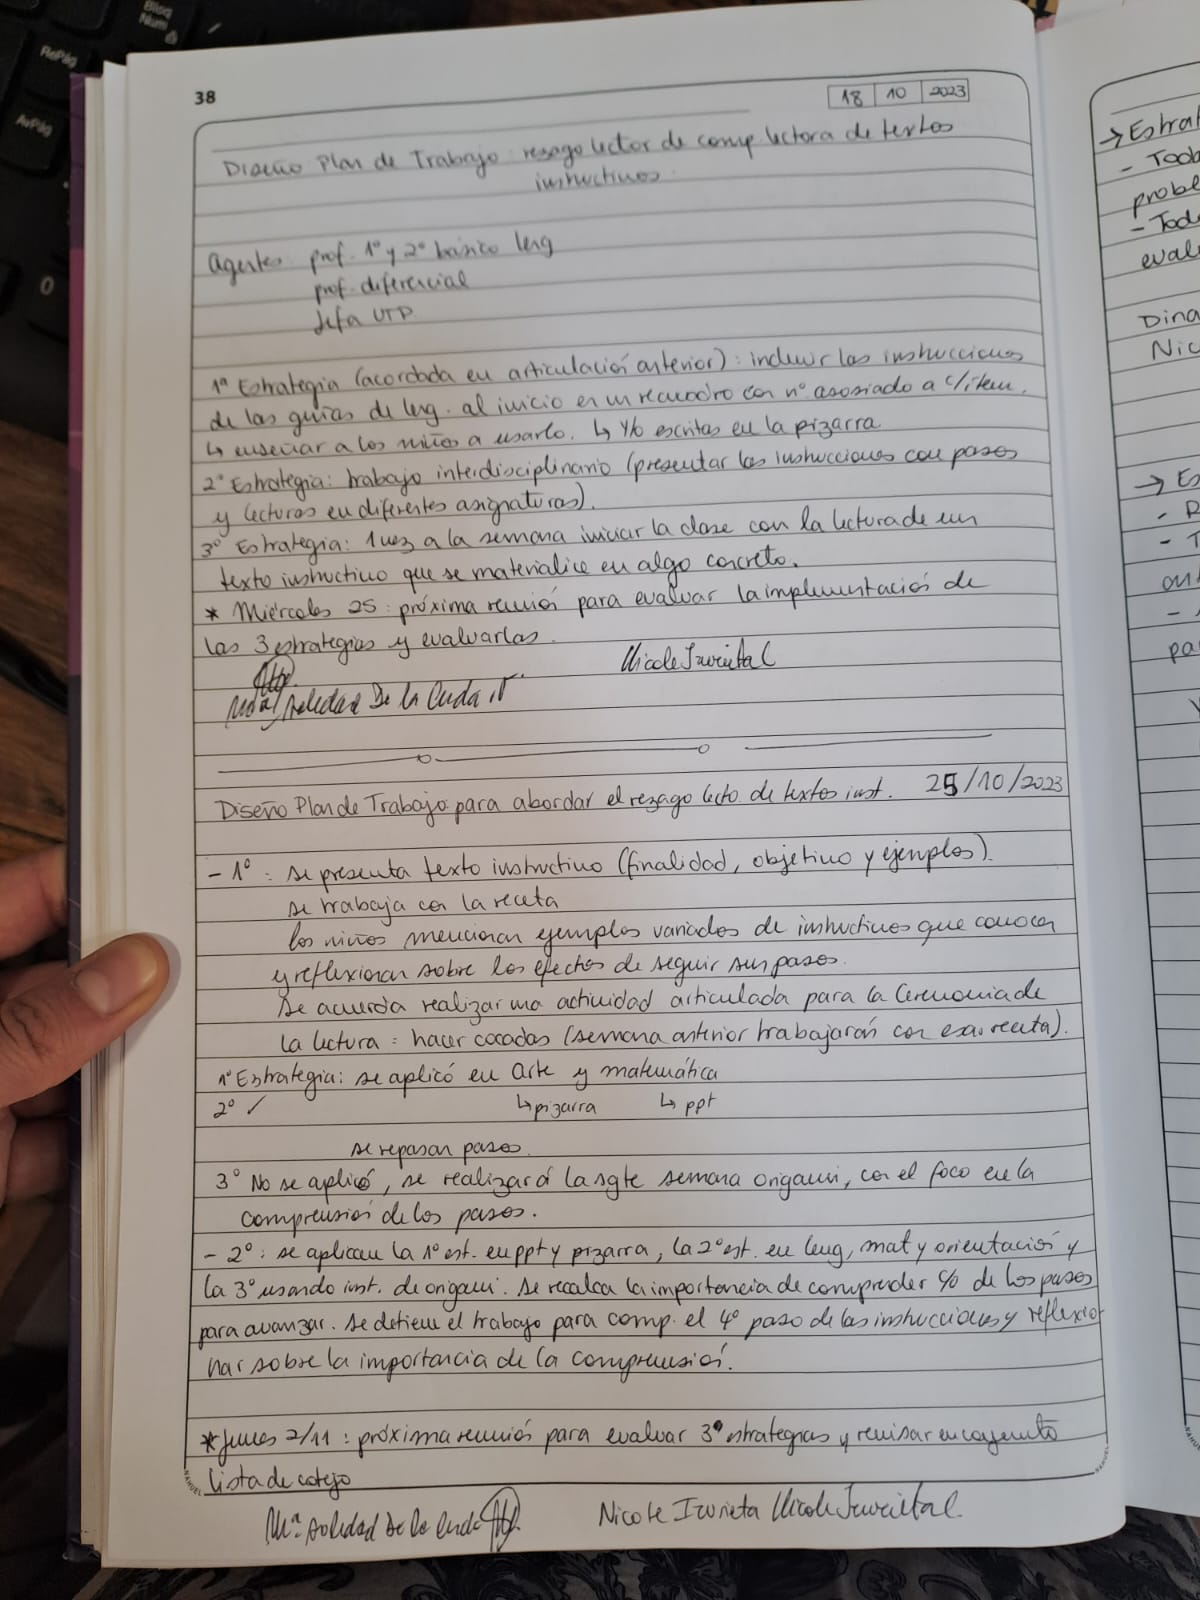 Bloq
Num
RePág
AvPág
0
38
18 10 2023
Diseño Plan de Trabajo: rezago lector de comp lectora de textos
instructivos.
Agentes: prof. 1º y 2º básico leng
prof. diferencial
Jefa UTP
1ª Estrategia (acordada en articulación anterior): incluir las instrucciones
de las guías de leng. al inicio en un recuadro con nº asosiado a c/ítem.
↳ enseñar a los niños a usarlo. ↳ y/o escritas en la pizarra
2º Estrategia: trabajo interdisciplinario (presentar las instrucciones con pasos
y lecturas en diferentes asignaturas).
3º Estrategia: 1 vez a la semana iniciar la clase con la lectura de un
texto instructivo que se materialice en algo concreto.
* Miércoles 25: próxima reunión para evaluar la implementación de
las 3 estrategias y evaluarlas.
Nicole Izurieta C
Soledad De la Cuda
Diseño Plan de Trabajo para abordar el rezago lecto. de textos inst. 25/10/2023
- 1º: se presenta texto instructivo (finalidad, objetivo y ejemplos).
se trabaja con la receta
los niños mencionan ejemplos variados de instructivos que conocen
y reflexionan sobre los efectos de seguir sus pasos.
Se acuerda realizar una actividad articulada para la Ceremonia de
la lectura: hacer cocadas (semana anterior trabajarán con esa receta).
1º Estrategia: se aplicó en Arte y matemática
2º ✓ ↳ pizarra ↳ ppt
se repasan pasos.
3º No se aplicó, se realizará la sgte semana origami, con el foco en la
comprensión de los pasos.
- 2º: se aplican la 1º est. en ppt y pizarra, la 2º est. en leng, mat y orientación y
la 3º usando inst. de origami. Se recalca la importancia de comprender c/o de los pasos
para avanzar. Se detiene el trabajo para comp. el 4º paso de las instrucciones y reflexio
nar sobre la importancia de la comprensión.
* Jueves 2/11: próxima reunión para evaluar 3º estrategias y revisar en conjunto
lista de cotejo
Mª Soledad De la Cuda Nicole Izurieta Nicole Izurieta C.
NAHUEL
NAHUEL
→ Estrat
- Toda
probe
- Tod
evalu
Dina
Nic
→ Es
- R
- T
pa